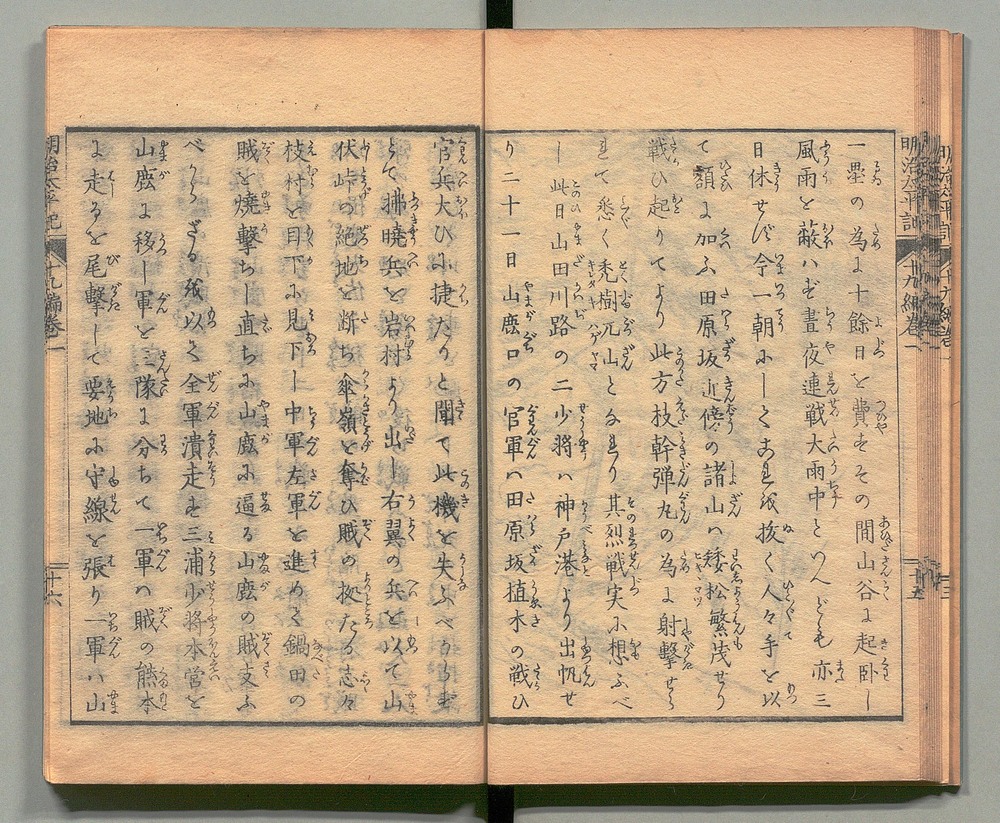 一壘の為に十餘日を費すその間山谷に起卧し
風雨を蔽ハず晝夜連戦大雨中といへども亦三
日休せず今一朝にしてこれを抜く人々手を以
て額に加ふ田原坂近傍の諸山ハ矮松繁茂せり
戦ひ起りてより此方枝幹弾丸の為に射撃せら
れて悉く禿樹兀山となれり其烈戦実に想ふべ
し此日山田川路の二少将ハ神戸港より出帆せ
り二十一日山麀口の官軍ハ田原坂植木の戦ひ
官兵大ひに捷たりと聞て此機を失ふべからず
とて拂曉兵を岩村より出し右翼の兵を以て山
伏峠の絶地を断ち傘嶺を奪ひ賊の拠たる志々
枝村を目下に見下し中軍左軍を進めて鍋田の
賊を焼撃ちし直ちに山麀に逼る山麀の賊支ふ
べからざるを以て全軍潰走す三浦少将本営を
山麀に移し軍を三隊に分ちて一軍ハ賊の熊本
に走るを尾撃して要地に守線を張り一軍ハ山
明治太平記
十九編卷一
十六